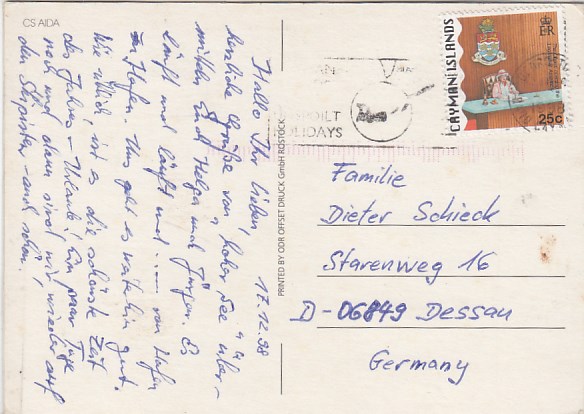 CS AIDA
17.12.98
Hallo Ihr Lieben,
herzliche Grüße von "hoher See" über-
mitteln Euch Helga und Jürgen. Es
läuft und läuft und ..... von Hafen
zu Hafen. Uns geht es weiterhin gut.
Wie üblich, ist es die schönste Zeit
des Jahres - Urlaub! Ein paar Tage
noch und dann sind wir wieder auf
den und schon.
PRINTED BY ODR OFFSET DRUCK GmbH ROSTOCK
CAYMAN ISLANDS
25c
HOLIDAYS
Familie
Dieter Schieck
Starenweg 16
D-06849 Dessau
Germany